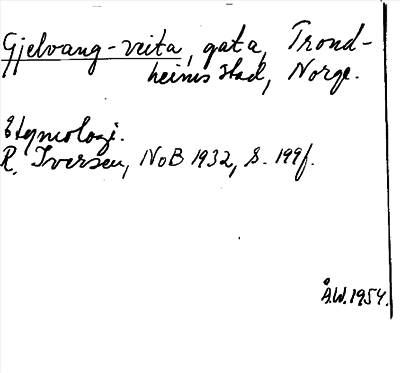 Gjelvang-veita, gata, Trond-
heims stad, Norge.
Etymologi.
R. Iversen, NoB 1932, s. 199f.
Å.W. 1954.